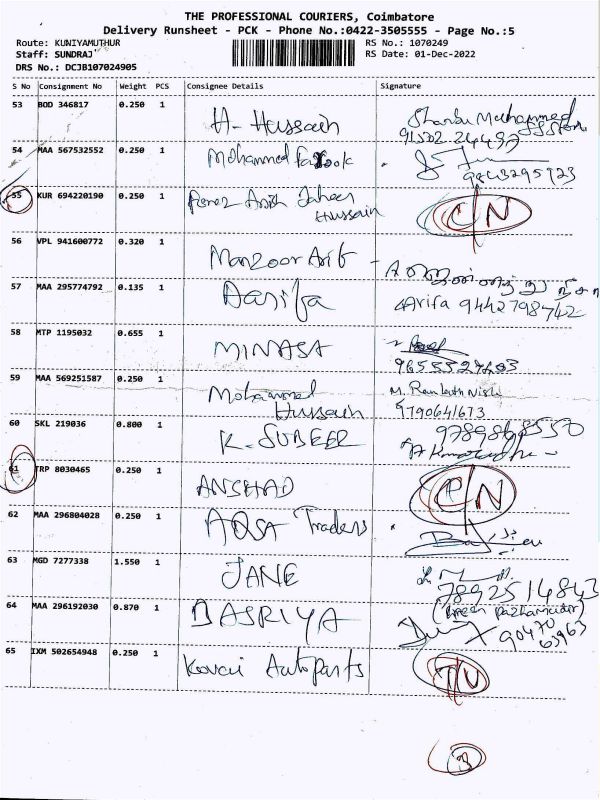 THE PROFESSIONAL COURIERS, Coimbatore
Delivery Runsheet - PCK - Phone No.:0422-3505555 - Page No.:5
Route: KUNIYAMUTHUR RS No.: 1070249
Staff: SUNDRAJ RS Date: 01-Dec-2022
DRS No.: DCJB107024905
S No Consignment No Weight PCS Consignee Details Signature
53 BOD 346817 0.250 1 H. Hussain
54 MAA 567532552 0.250 1 Mohammed Farook
55 KUR 694220190 0.250 1
Hussain
56 VPL 941600772 0.320 1 Manzoor Arif
57 MAA 295774792 0.135 1 Aarifa Arifa 9442798742
58 MTP 1195032 0.655 1 MINASA
59 MAA 569251587 0.250 1 Mohammed
Hussain 9790641673
60 SKL 219036 0.800 1 K. SUBEER
61 TRP 8030465 0.250 1 ANSHAD
62 MAA 296804028 0.250 1 AQSA Traders
63 MGD 7277338 1.550 1 JANE
7892514843
64 MAA 296192030 0.870 1 DASRIYA
90470
63963
65 IXM 502654948 0.250 1 Kovai Autoparts
3